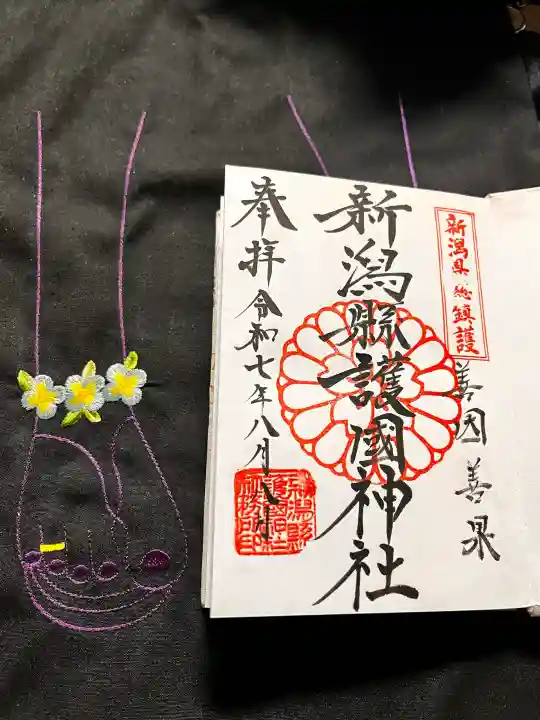 新潟県総鎮護
善因善果
新潟縣護國神社
奉拝令和七年八月八日